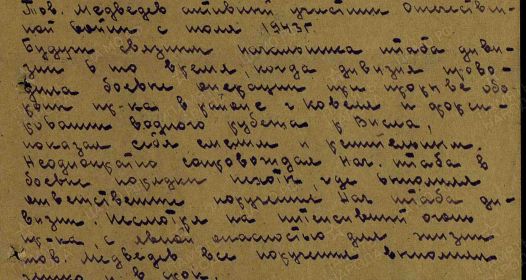 Тов. Медведев активный участник отечествен-
ной войны с июля 1943г.
Будучи связным начальника штаба диви-
зии в то время, когда дивизия прово-
дила боевые операции при прорыве обо
роны пр-ка, в районе г. Ковеля и форси-
ровании водного рубежа р. Висла,
показал себя смелым и решительным.
Неоднократно сопровождал нач. штаба в
боевые порядки пехоты, где выполнял
ответственные поручения нач штаба ди-
визии. Несмотря на интенсивный огонь
пр-ка, с явной опасностью для жизни
тов. Медведев все поручения выполнял
точно и в срок.